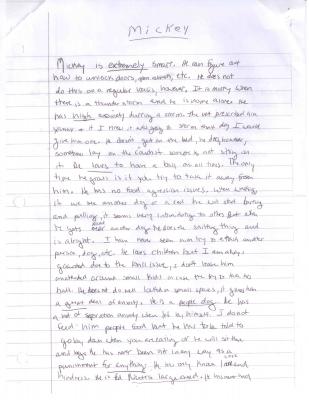 Mickey
Mickey is extremely smart. He can figure out
how to unlock doors, open, etc. He does not
do this on a regular basis, however. It is mainly when
there is a thunder storm and he is home alone. He
has high anxiety during a storm. The vet prescribed him
if I knew it was going to storm that day I would
give him one. He doesn't get on the bed, he does, however,
sometimes lay on the couch if someone is not sitting on
it. He loves to have a ball at all times. The only
time he growls is if you try to take it away from
him. He has no food aggression issues. When walking
if we see another dog or a cat he will start barking
and pulling, it seems very intimidating to others but when
he gets near another dog he doesn't do anything and
is alright. I have never seen him try to attack another
person, dog, etc. He loves children but I am always
guarded due to the ball issue, I don't leave him
unattended around small kids in case they try to take his
ball. He does not do well locked in small spaces, it gives him
a great deal of anxiety. He is a people dog. He has
a lot of separation anxiety when left by himself. I do not
feed him people food but he has to be told to
go lay down when you are eating or he will sit there
and beg. He has never been hit in any way as a
punishment for anything. He has only known love and
kindness. He is fed large breed. He has never had